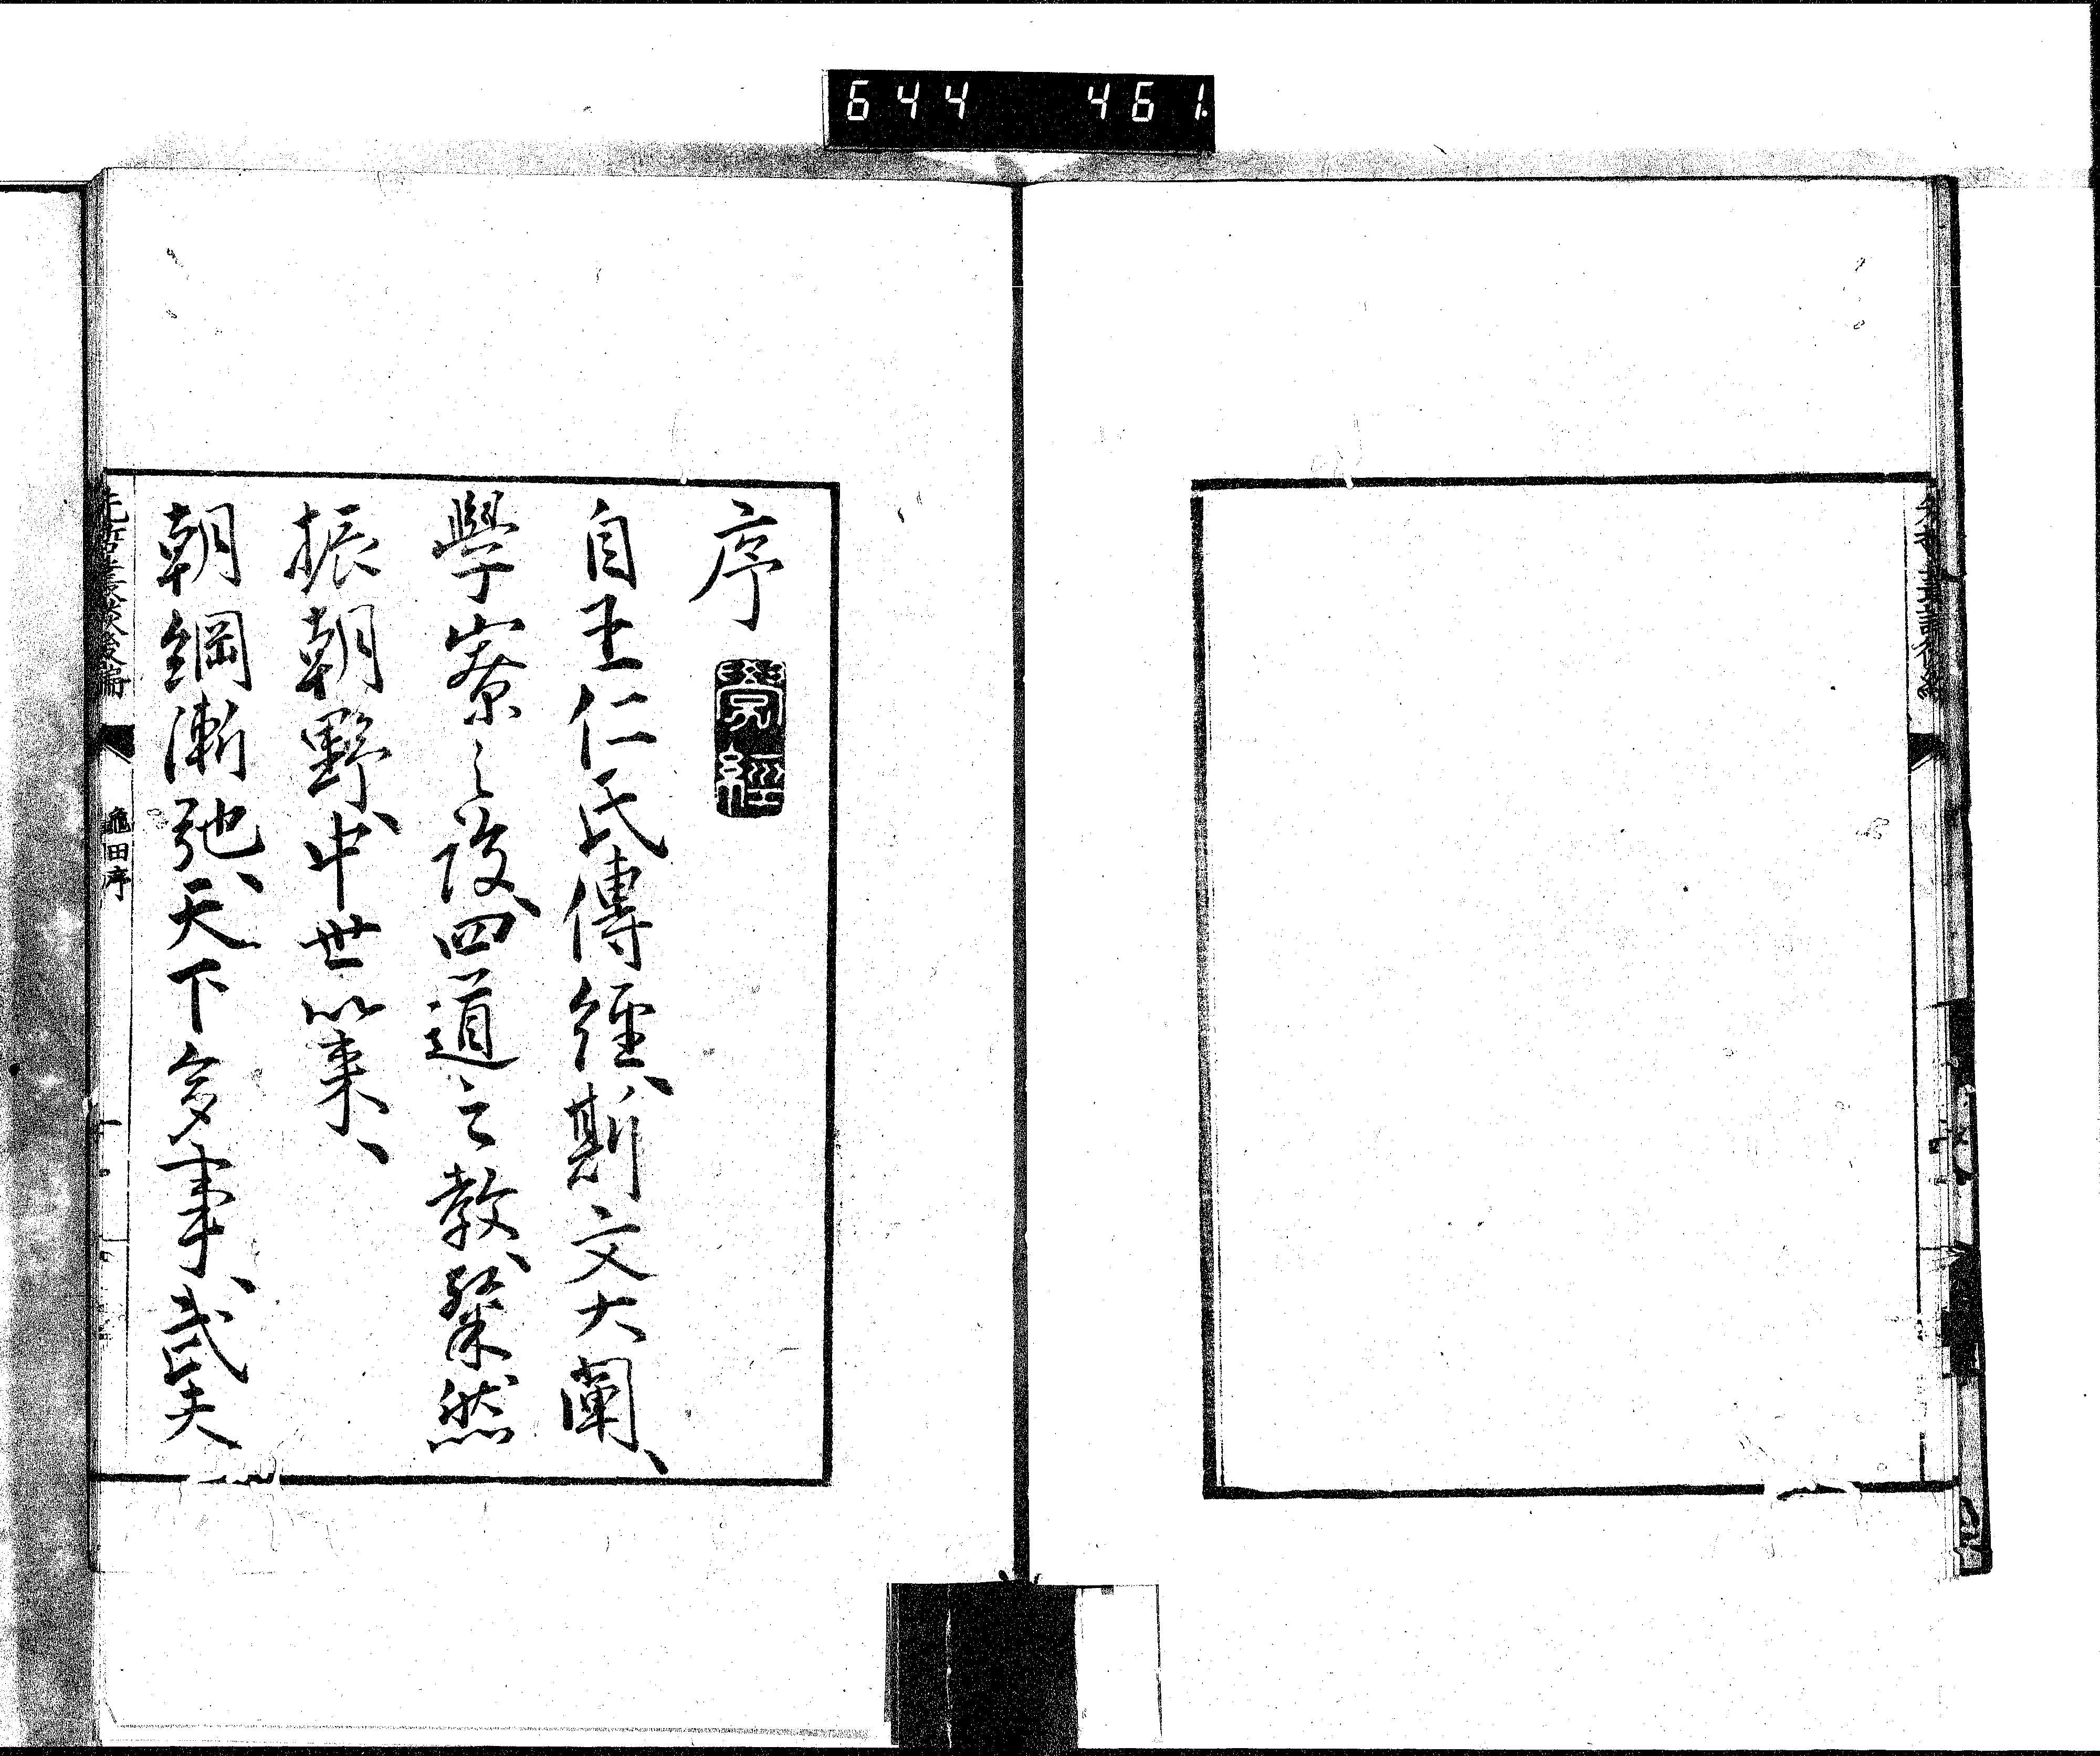 644 461
序
自王仁氏傳經、斯文大闡、
學寮之設、四道之教、粲然
振朝野、中世以来、
朝綱漸弛、天下多事、武夫
先哲叢談後編 龜田序 一